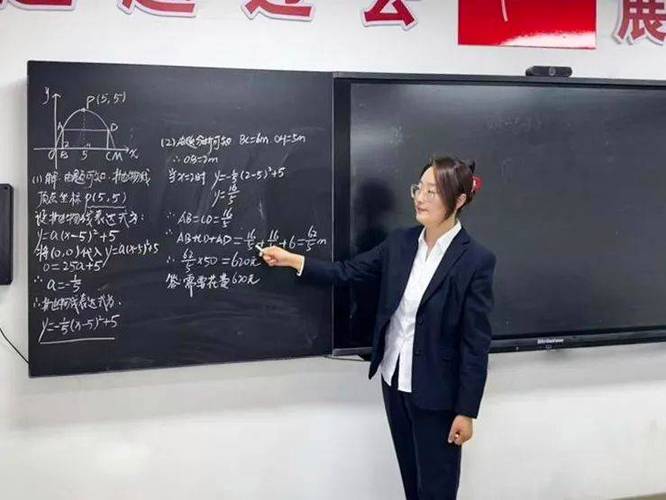 展
y
P(5,5)
A
D
O B 5 C M x
(1)解:由题可知,抛物线
顶点坐标P(5,5)
设抛物线表达式为:
y=a(x-5)²+5
将(0,0)代入y=a(x-5)²+5
0=25a+5
∴a=-1/5
∴抛物线表达式为:
y=-1/5(x-5)²+5
(2)由题分析可知 BC=6m OM=5m
∴OB=2m
当x=2时 y=-1/5(2-5)²+5
y=16/5
∴AB=CD=16/5
∴AB+CD+AD=16/5+16/5+6=62/5m
∴62/5×50=620元
答:需要花费620元